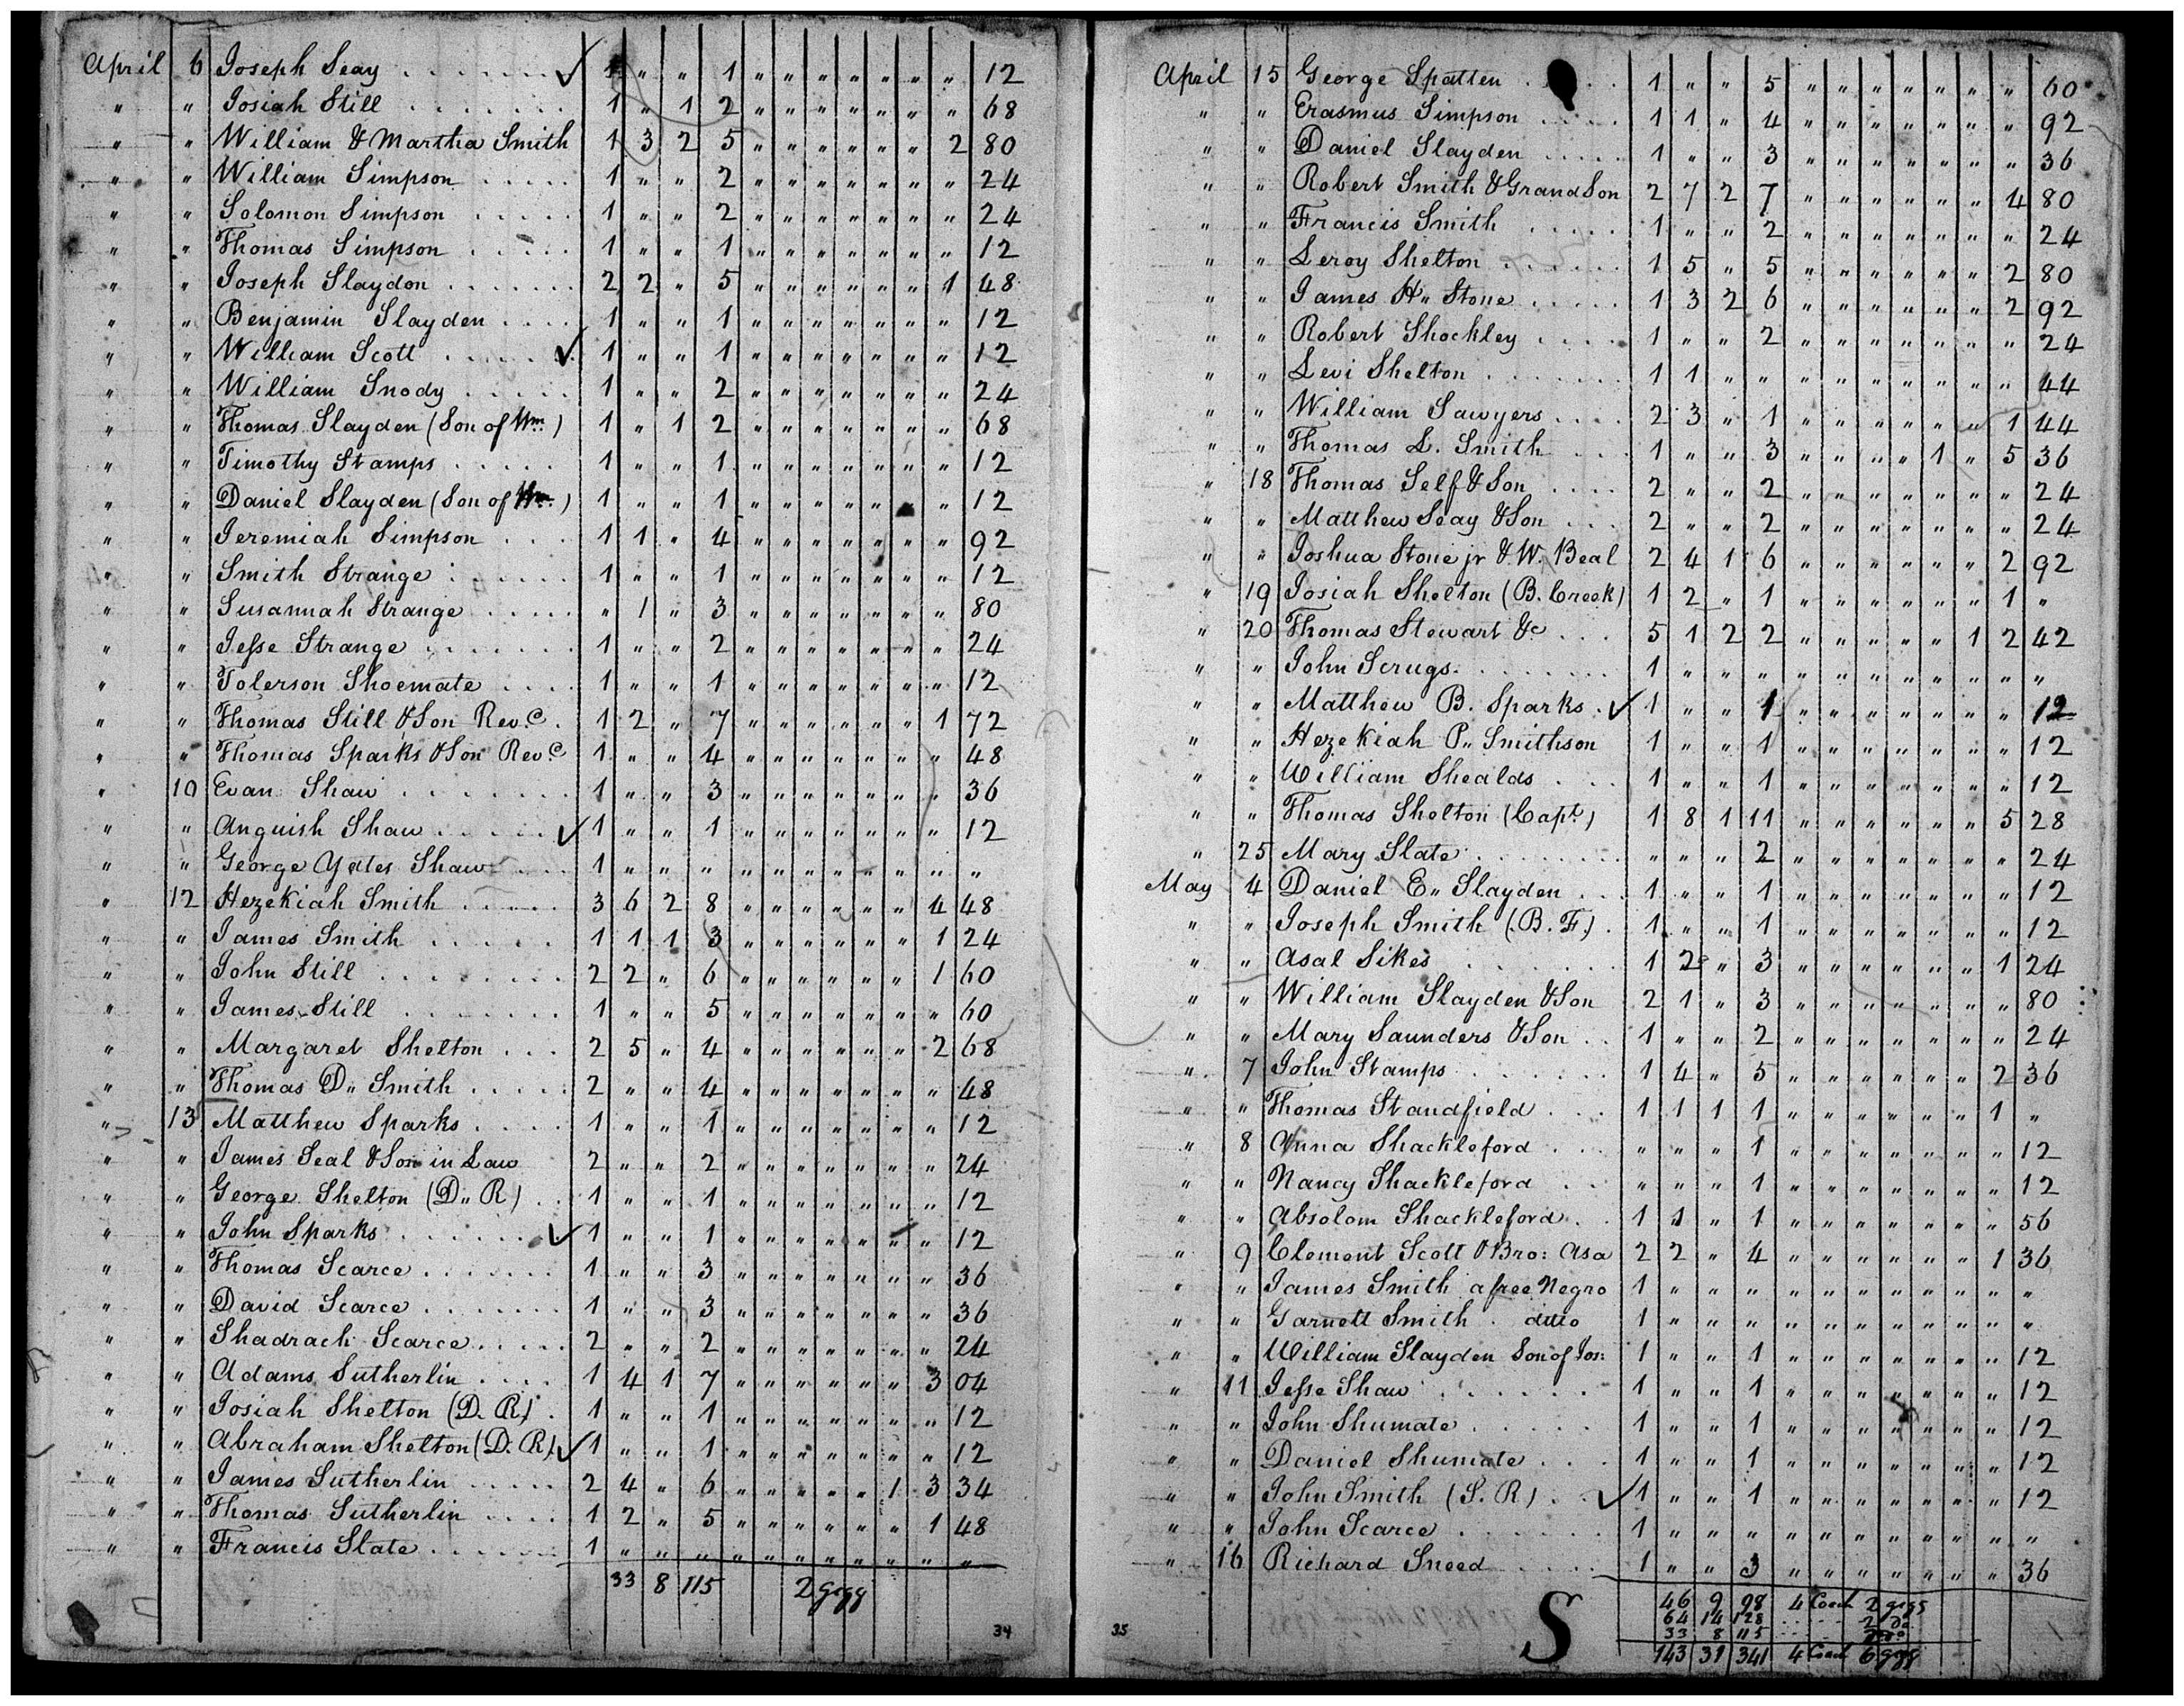 April 6 Joseph Seay . . . . . . . ✓ 1 " " 1 " " " " " " " 12
" " Josiah Still . . . . . . . 1 " 1 2 " " " " " " " 68
" " William & Martha Smith 1 3 2 5 " " " " " " 2 80
" " William Simpson . . . . . 1 " " 2 " " " " " " " 24
" " Solomon Simpson . . . . . 1 " " 2 " " " " " " " 24
" " Thomas Simpson . . . . . 1 " " 1 " " " " " " " 12
" " Joseph Slaydon . . . . . . . 2 2 " 5 " " " " " " 1 48
" " Benjamin Slayden . . . . 1 " " 1 " " " " " " " 12
" " William Scott . . . . . ✓ 1 " " 1 " " " " " " " 12
" " William Snody . . . . . 1 " " 2 " " " " " " " 24
" " Thomas Slayden (Son of Wm.) 1 " 1 2 " " " " " " " 68
" " Timothy Stamps . . . . . 1 " " 1 " " " " " " " 12
" " Daniel Slayden (Son of Wm.) 1 " " 1 " " " " " " " 12
" " Jeremiah Simpson . . . 1 1 " 4 " " " " " " " 92
" " Smith Strange . . . . . 1 " " 1 " " " " " " " 12
" " Susannah Strange . . . . . " 1 " 3 " " " " " " " 80
" " Jesse Strange . . . . . . . 1 " " 2 " " " " " " " 24
" " Tolerson Shoemate . . . . 1 " " 1 " " " " " " " 12
" " Thomas Still & Son Rev.d . 1 2 " 7 " " " " " " 1 72
" " Thomas Sparks & Son Rev.d 1 " " 4 " " " " " " " 48
" 10 Evan Shaw . . . . . . . 1 " " 3 " " " " " " " 36
" " Anguish Shaw . . . . . ✓ 1 " " 1 " " " " " " " 12
" " George Yates Shaw . . . 1 " " " " " " " " " " "
" 12 Hezekiah Smith . . . . . 3 6 2 8 " " " " " " 4 48
" " James Smith . . . . . 1 1 1 3 " " " " " " 1 24
" " John Still . . . . . . . . 2 2 " 6 " " " " " " 1 60
" " James Still . . . . . . . 1 " " 5 " " " " " " " 60
" " Margaret Shelton . . . 2 5 " 4 " " " " " " 2 68
" " Thomas D" Smith . . . . . 2 " " 4 " " " " " " " 48
" 13 Matthew Sparks . . . . 1 " " 1 " " " " " " " 12
" " James Seal & Son in Law 2 " " 2 " " " " " " " 24
" " George Shelton (D" R) . . 1 " " 1 " " " " " " " 12
" " John Sparks . . . . . . . ✓ 1 " " 1 " " " " " " " 12
" " Thomas Scarce . . . . . . . 1 " " 3 " " " " " " " 36
" " David Scarce . . . . . . . 1 " " 3 " " " " " " " 36
" " Shadrach Scarce . . . . . 2 " " 2 " " " " " " " 24
" " Adams Sutherlin . . . . 1 4 1 7 " " " " " " 3 04
" " Josiah Shelton (D. R.) . 1 " " 1 " " " " " " " 12
" " Abraham Shelton (D. R) ✓ 1 " " 1 " " " " " " " 12
" " James Sutherlin . . . . . 2 4 " 6 " " " " " 1 3 34
" " Thomas Sutherlin . . . . 1 2 " 5 " " " " " " 1 48
" " Francis Slate . . . . . . . 1 " " " " " " " " " " "
33 8 115 2 gigg
34
April 15 George Spatten . . . . 1 " " 5 " " " " " " " 60
" " Erasmus Simpson . . . . 1 1 " 4 " " " " " " " 92
" " Daniel Slayden . . . . . 1 " " 3 " " " " " " " 36
" " Robert Smith & GrandSon 2 7 2 7 " " " " " " 4 80
" " Francis Smith . . . . . 1 " " 2 " " " " " " " 24
" " Leroy Shelton . . . . . . 1 5 " 5 " " " " " " 2 80
" " James H" Stone . . . . . 1 3 2 6 " " " " " " 2 92
" " Robert Shockley . . . . 1 " " 2 " " " " " " " 24
" " Levi Shelton . . . . . . . 1 1 " " " " " " " " " 44
" " William Sawyers . . . . 2 3 " 1 " " " " " " 1 44
" " Thomas L. Smith . . . 1 " " 3 " " " " 1 " 5 36
" 18 Thomas Self & Son . . . . 2 " " 2 " " " " " " " 24
" " Matthew Seay & Son . . . 2 " " 2 " " " " " " " 24
" " Joshua Stone jr & W. Beal 2 4 1 6 " " " " " " 2 92
" 19 Josiah Shelton (B. Creek) 1 2 " 1 " " " " " " 1 "
" 20 Thomas Stewart &c . . . 5 1 2 2 " " " " " 1 2 42
" " John Scrugs . . . . . . . 1 " " " " " " " " " " "
" " Matthew B. Sparks . ✓ 1 " " 1 " " " " " " " 12
" " Hezekiah P" Smithson 1 " " 1 " " " " " " " 12
" " William Shealds . . . 1 " " 1 " " " " " " " 12
" " Thomas Shelton (Capt.) 1 8 1 11 " " " " " " 5 28
" 25 Mary Slate . . . . . . . . " " " 2 " " " " " " " 24
May 4 Daniel E" Slayden . . 1 " " 1 " " " " " " " 12
" " Joseph Smith (B. F.) . 1 " " 1 " " " " " " " 12
" " Asal Sikes . . . . . . . 1 2 " 3 " " " " " " 1 24
" " William Slayden & Son 2 1 " 3 " " " " " " " 80
" " Mary Saunders & Son . . 1 " " 2 " " " " " " " 24
" 7 John Stamps . . . . . . . 1 4 " 5 " " " " " " 2 36
" " Thomas Standfield . . . 1 1 1 1 " " " " " " 1 "
" 8 Anna Shackleford . . . " " " 1 " " " " " " " 12
" " Nancy Shackleford . . " " " 1 " " " " " " " 12
" " Absolom Shackleford . . 1 1 " 1 " " " " " " " 56
" 9 Clement Scott & Bro: Asa 2 2 " 4 " " " " " " 1 36
" " James Smith a free Negro 1 " " " " " " " " " " "
" " Garnett Smith . ditto 1 " " " " " " " " " " "
" " William Slayden Son of Jos: 1 " " 1 " " " " " " " 12
" 11 Jesse Shaw . . . . . . 1 " " 1 " " " " " " " 12
" " John Shumate . . . . . 1 " " 1 " " " " " " " 12
" " Daniel Shumate . . . 1 " " 1 " " " " " " " 12
" " John Smith (S. R) . . ✓ 1 " " 1 " " " " " " " 12
" " John Scarce . . . . . . 1 " " " " " " " " " " "
" 16 Richard Sneed . . . . . 1 " " 3 " " " " " " " 36
46 9 98 4 Coach 2 gigs
64 14 128 2 do
33 8 115 2 do
143 31 341 4 Coach 6 gigg
35 S